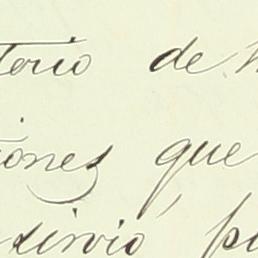 torio de
iones que
sirvio, p